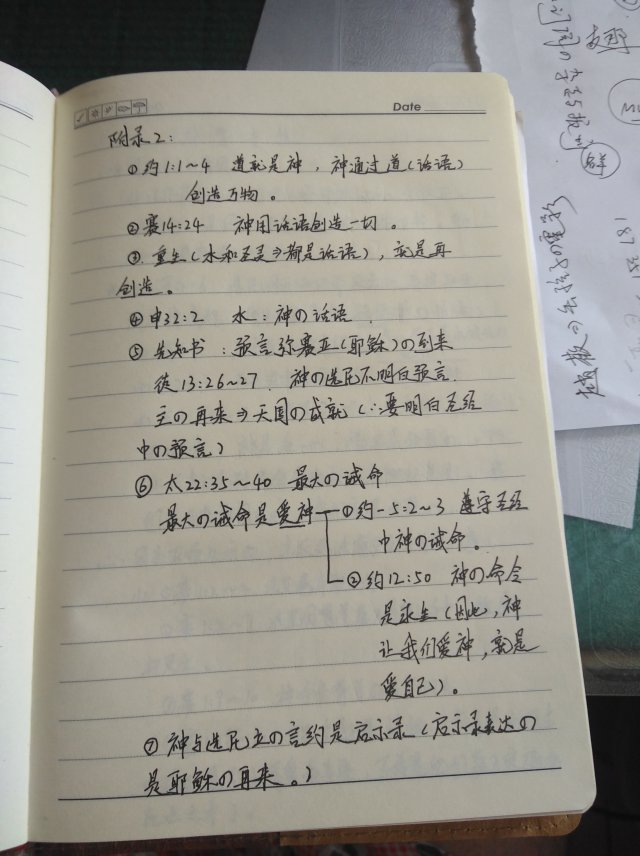 Date
附录2:
①约1:1~4 道就是神，神通过道(话语)
创造万物。
②赛14:24 神用话语创造一切。
③重生(水和圣灵⇒都是话语)，就是再
创造。
④申32:2 水:神の话语.
⑤先知书:预言弥赛亚(耶稣)の到来
徒13:26~27. 神の选民不明白预言.
主の再来⇒天国の成就(∵要明白圣经
中の预言)
⑥太22:35~40 最大の诫命
最大の诫命是爱神 ①约一5:2~3 遵守圣经
中神の诫命。
②约12:50 神の命令
是永生(因此,神
让我们爱神,就是
爱自己)。
⑦神与选民立の言约是启示录(启示录表达の
是耶稣の再来。)
187